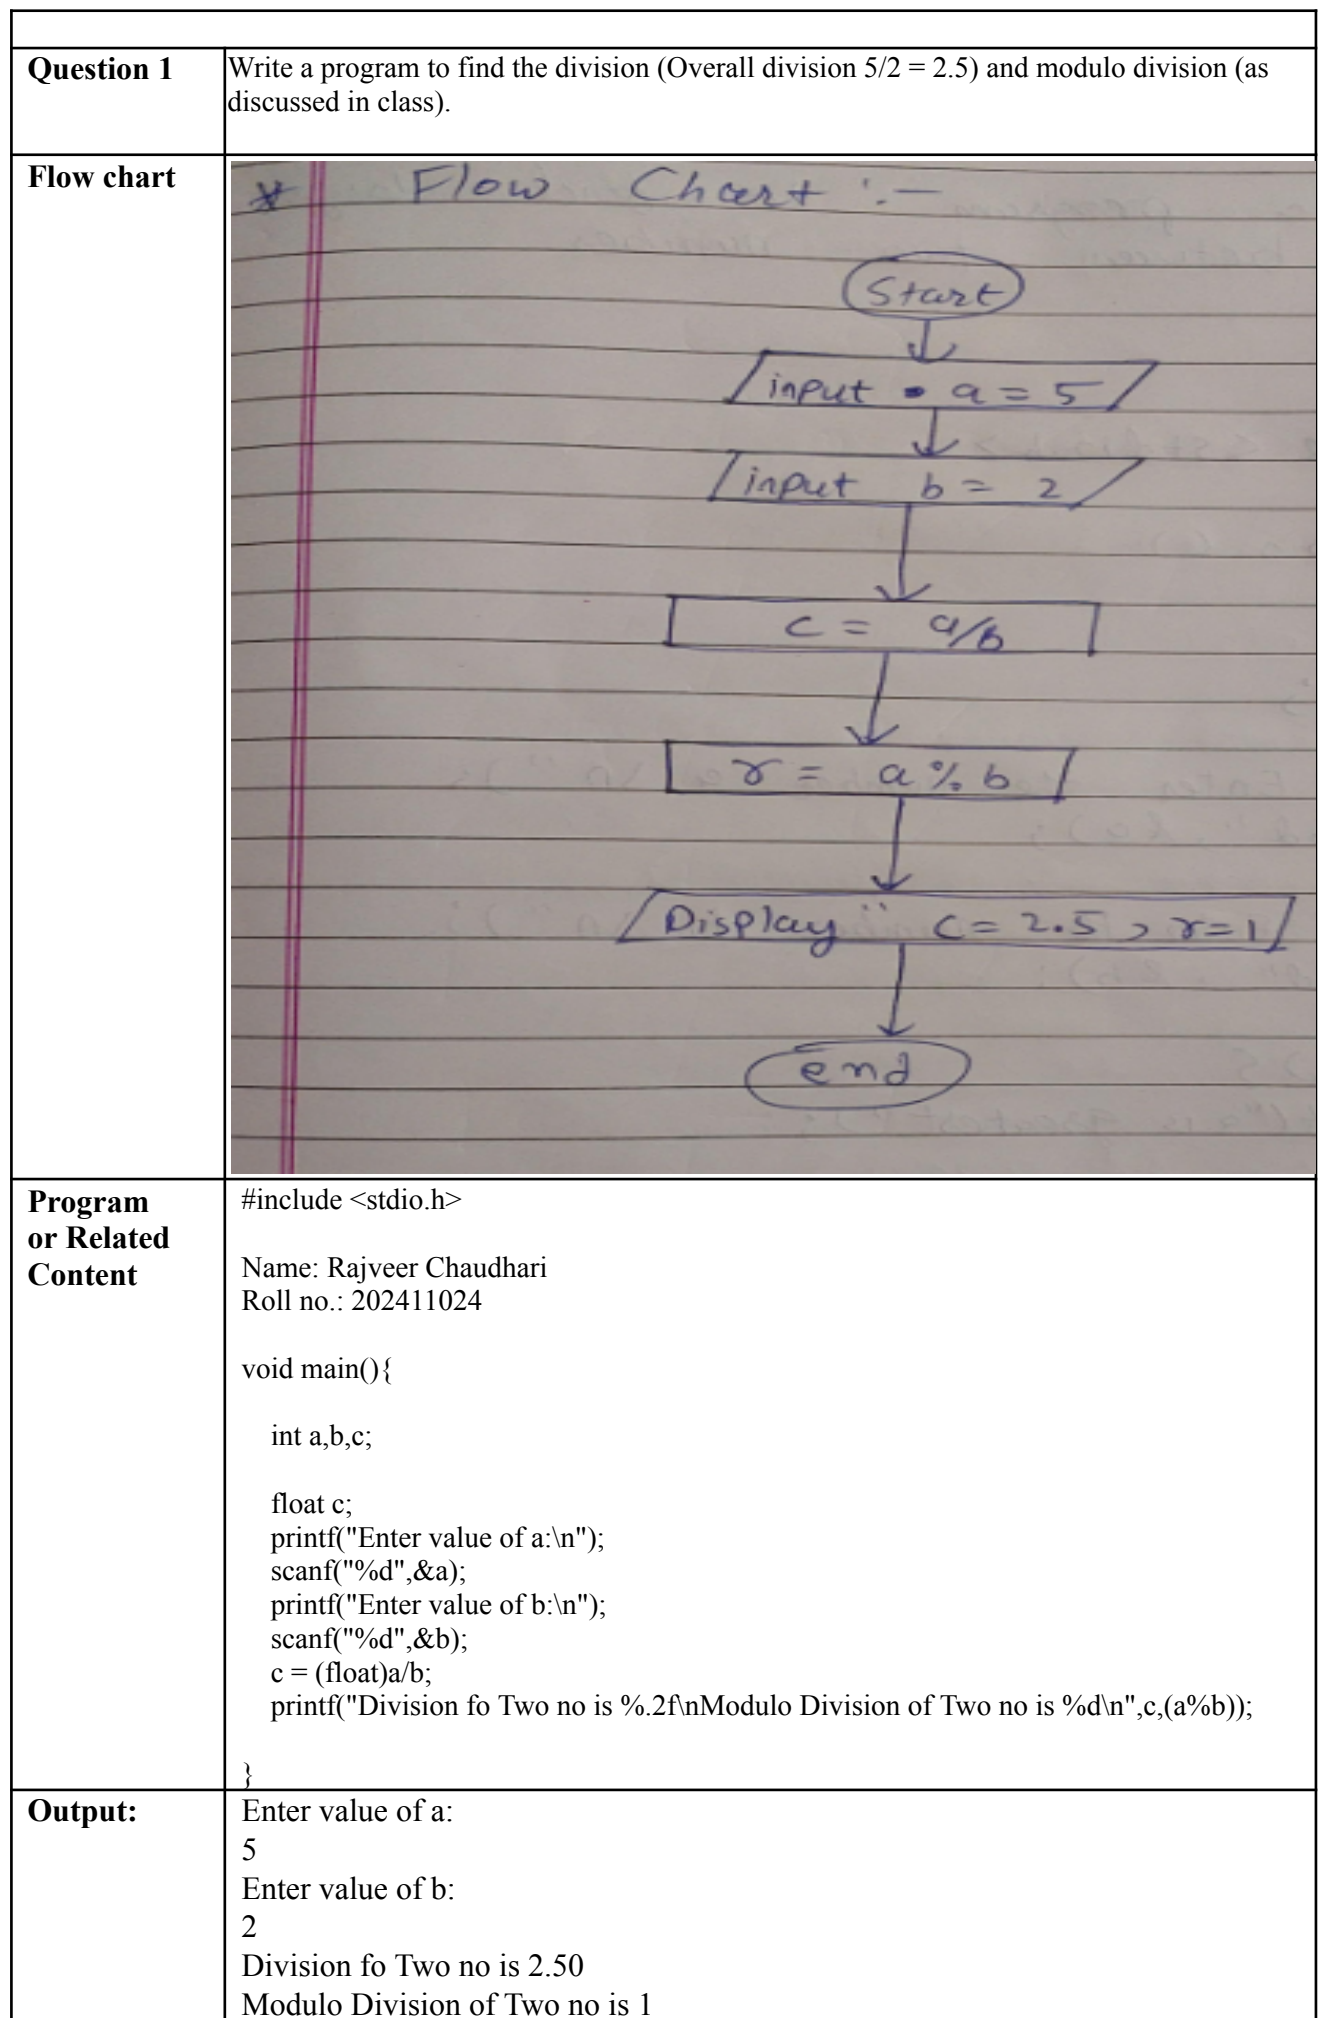 Question 1
Write a program to find the division (Overall division 5/2 = 2.5) and modulo division (as
discussed in class).
Flow chart
* Flow Chart :-
Start
input a = 5
input b = 2
c = a/b
r = a % b
Display " c = 2.5 , r=1
end
Program
or Related
Content
#include <stdio.h>
Name: Rajveer Chaudhari
Roll no.: 202411024
void main(){
int a,b,c;
float c;
printf("Enter value of a:\n");
scanf("%d",&a);
printf("Enter value of b:\n");
scanf("%d",&b);
c = (float)a/b;
printf("Division fo Two no is %.2f\nModulo Division of Two no is %d\n",c,(a%b));
}
Output:
Enter value of a:
5
Enter value of b:
2
Division fo Two no is 2.50
Modulo Division of Two no is 1